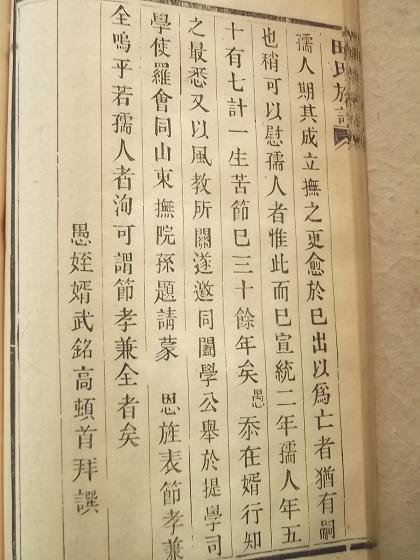 田氏族譜
孺人期其成立撫之更愈於已出以爲亡者猶有嗣
也稍可以慰孺人者惟此而已宣統二年孺人年五
十有七計一生苦節已三十餘年矣愚忝在婿行知
之最悉又以風教所關遂邀同闔學公舉於提學司
學使羅會同山東撫院孫題請蒙　恩旌表節孝兼
全嗚乎若孺人者洵可謂節孝兼全者矣
愚姪婿武銘高頓首拜譔